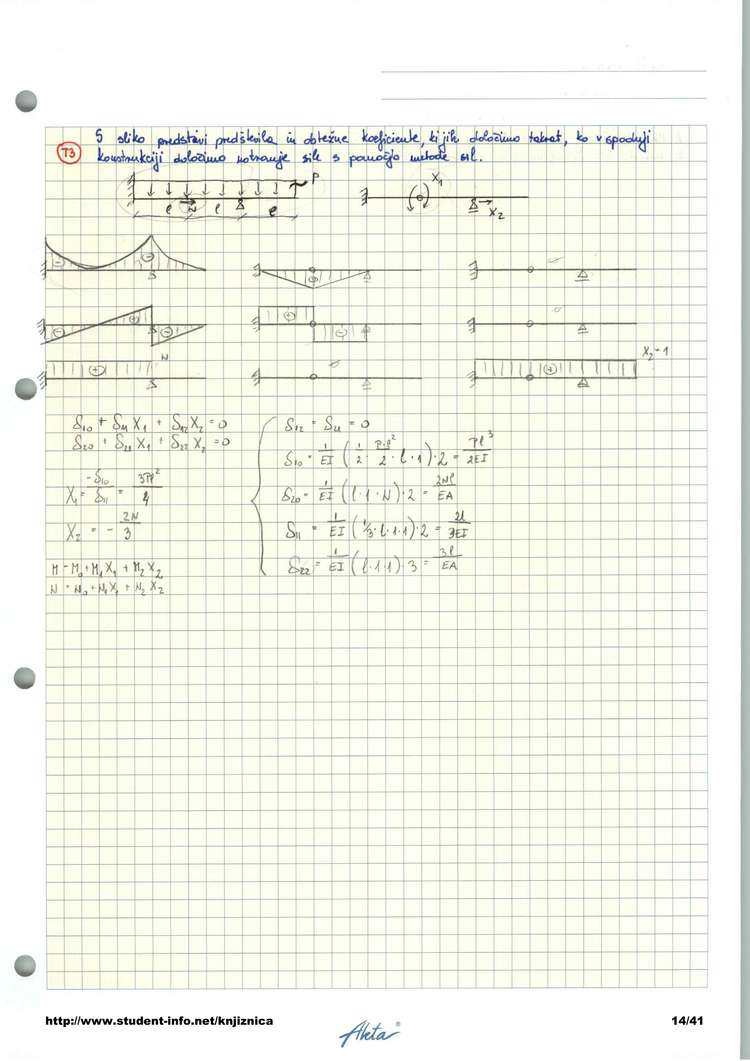 S sliko predstavi predštevila in obtežne koeficiente, ki jih določimo takrat, ko v spodnji
T3
konstrukciji določimo notranje sile s pomočjo metode sil.
P
X₁
N
X₂
l l l
⊖ ⊖ ⊕
⊖ ⊕ ⊖ ⊕ ⊖
N
X₂=1
⊕ ⊕
δ₁₀ + δ₁₁ X₁ + δ₁₂ X₂ = 0
δ₂₀ + δ₂₁ X₁ + δ₂₂ X₂ = 0
X₁ = -δ₁₀/δ₁₁ = 3Pl²/4
X₂ = - 2N/3
M = M₀ + M₁X₁ + M₂X₂
N = N₀ + N₁X₁ + N₂X₂
δ₁₂ = δ₂₁ = 0
δ₁₀ = 1/EI (1/2 · P·l²/2 · l · 1) · 2 = Pl³/2EI
δ₂₀ = 1/EI (l · 1 · N) · 2 = 2Nl/EA
δ₁₁ = 1/EI (1/3 · l · 1 · 1) · 2 = 2l/3EI
δ₂₂ = 1/EI (l · 1 · 1) · 3 = 3l/EA
http://www.student-info.net/knjiznica
Akta
14/41